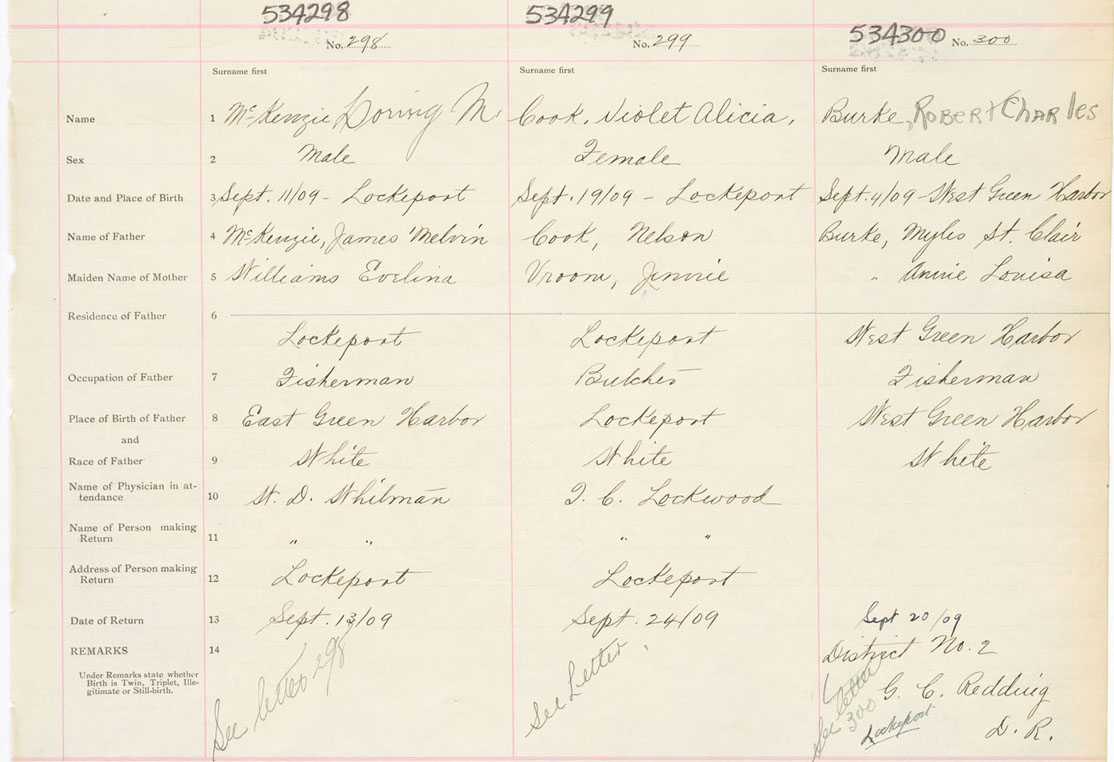 534298 534299 534300
No. 298 No. 299 No. 300
Surname first Surname first Surname first
Name 1 McKenzie Loring M. Cook, Violet Alicia, Burke, Robert Charles
Sex 2 Male Female Male
Date and Place of Birth 3 Sept. 11/09 - Lockeport Sept. 19/09 - Lockeport Sept. 4/09 - West Green Harbor
Name of Father 4 McKenzie, James Melvin Cook, Nelson Burke, Myles St. Clair
Maiden Name of Mother 5 Williams Evelina Vroom, Jennie " Annie Louisa
Residence of Father 6
Lockeport Lockeport West Green Harbor
Occupation of Father 7 Fisherman Butcher Fisherman
Place of Birth of Father 8 East Green Harbor Lockeport West Green Harbor
and
Race of Father 9 White White White
Name of Physician in at-
tendance 10 W. D. Whitman L. C. Lockwood
Name of Person making
Return 11 " " " "
Address of Person making
Return 12 Lockeport Lockeport
Date of Return 13 Sept. 13/09 Sept. 24/09 Sept 20/09
REMARKS 14 See letter 298 See Letter District No. 2
Under Remarks state whether
Birth is Twin, Triplet, Ille-
gitimate or Still-birth.
See letter 300
G. C. Redding
Lockeport
D. R.